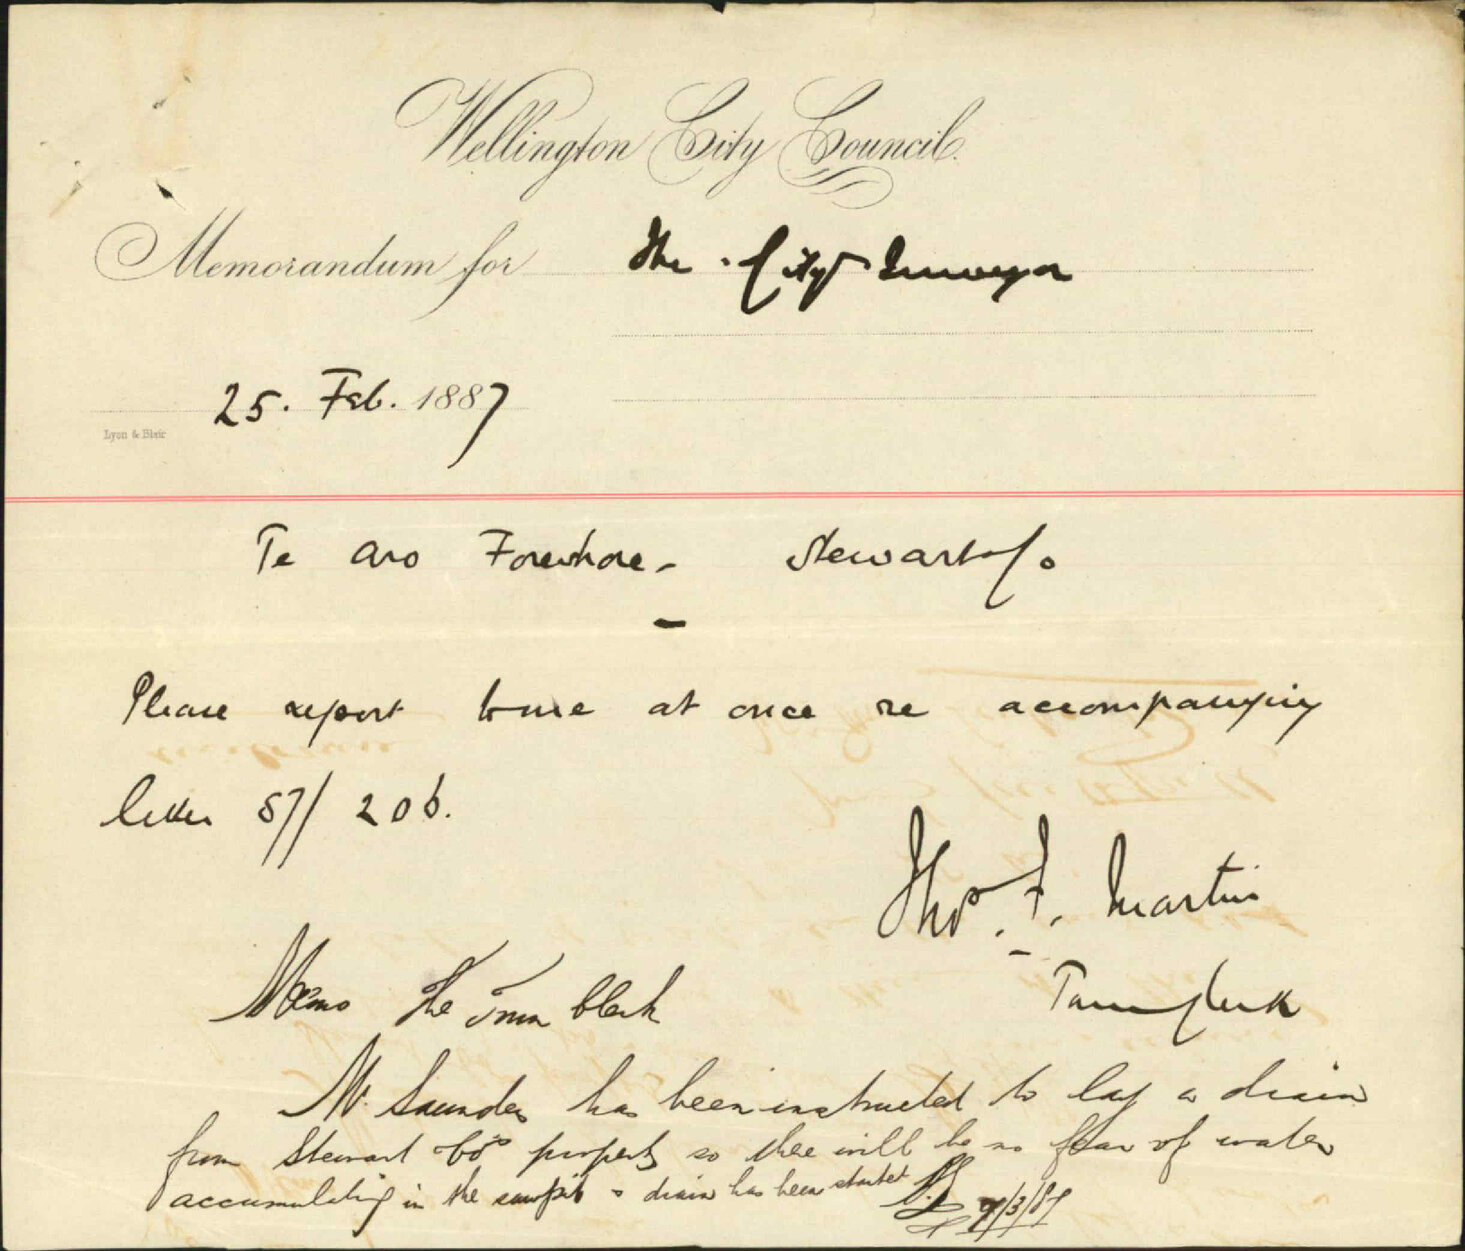 Wellington City Council.
Memorandum for The City Surveyor
25. Feb. 1887
Lyon & Blair
Te Aro Foreshore - Stewart & Co
Please report to me at once re accompanying
letter 87/206.
Thos. F. Martin
Town Clerk
Memo The Town Clerk
Mr. Saunders has been instructed to lay a drain
from Stewart & Cos property so there will be no fear of water
accumulating in the sawpit & drain has been started
7/3/87